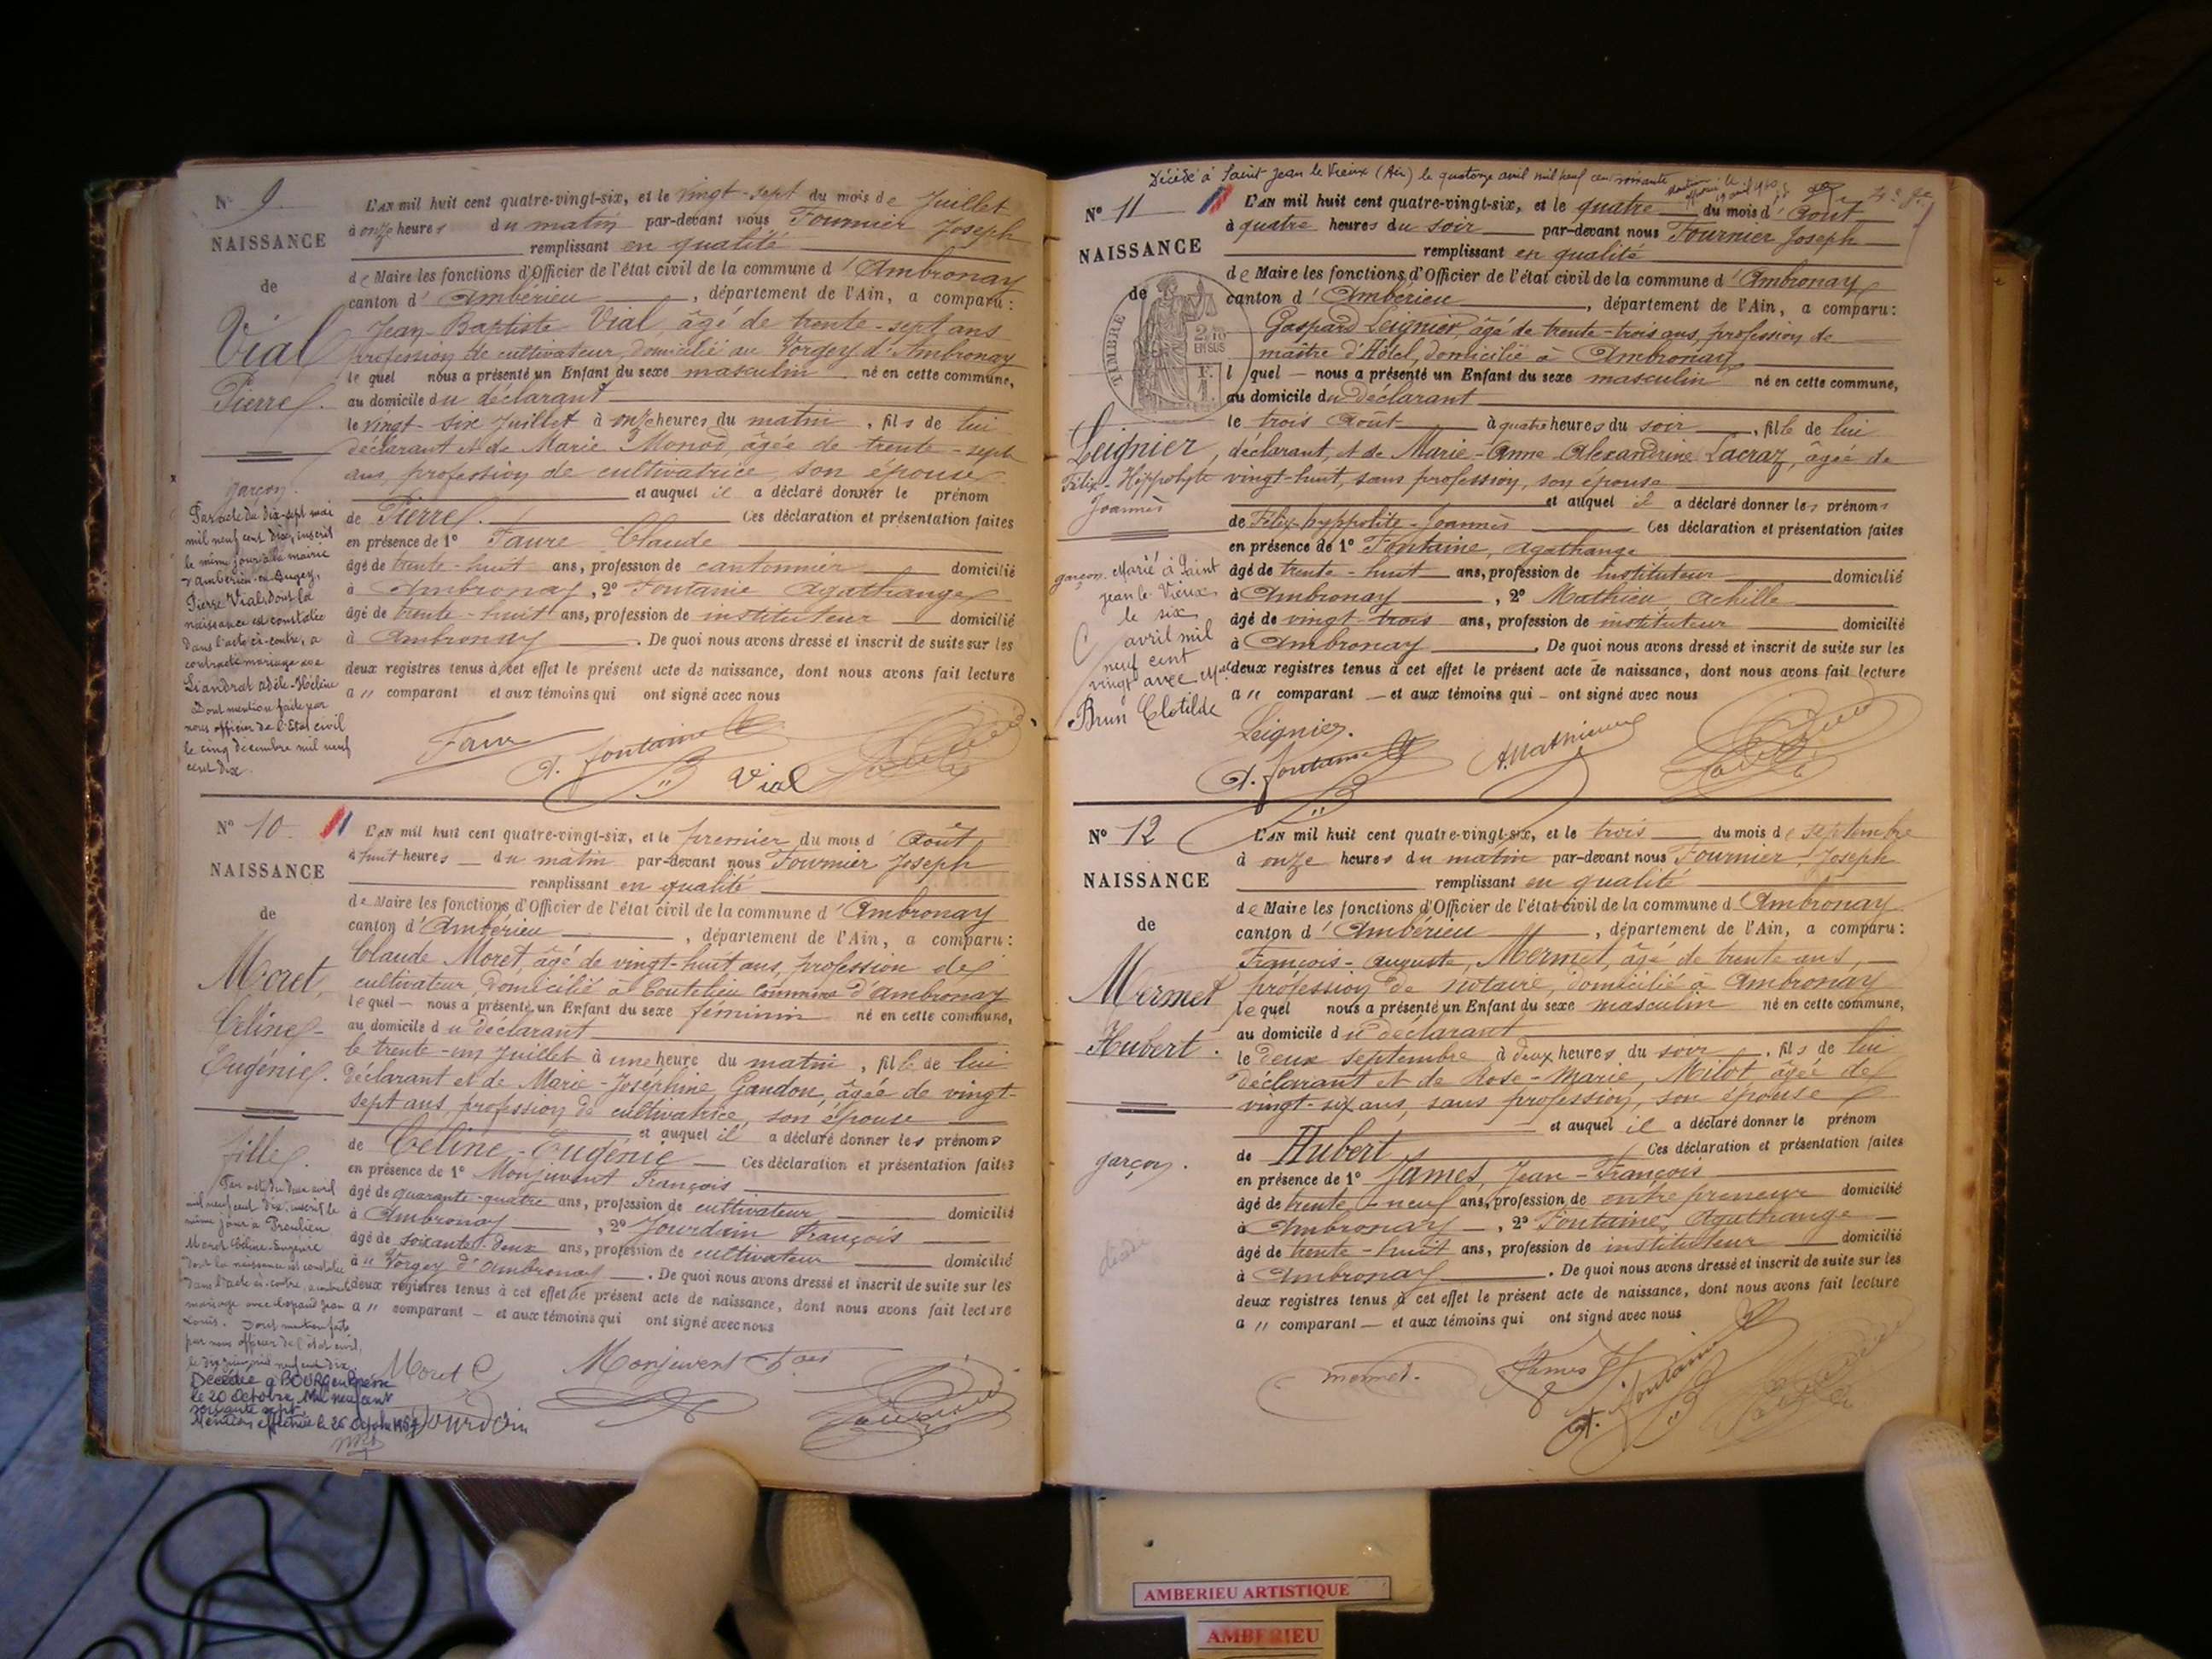 N° 9
NAISSANCE
de
Vial
Pierre.
garçon.
Par acte du dix-sept mai
mil neuf cent dix, inscrit
le même jour à la mairie
d'Ambérieu-en-Bugey,
Pierre Vial, dont la
naissance est constatée
dans l'acte ci-contre, a
contracté mariage avec
Liandrat Adèle-Hélène
Dont mention faite par
nous officier de l'Etat civil
le cinq décembre mil neuf
cent dix.
L'AN mil huit cent quatre-vingt-six, et le vingt-sept du mois de Juillet
à onze heures du matin par-devant nous Fournier Joseph
remplissant en qualité
de Maire les fonctions d'Officier de l'état civil de la commune d'Ambronay
canton d'Ambérieu, département de l'Ain, a comparu:
Jean-Baptiste Vial, âgé de trente-sept ans
profession de cultivateur, domicilié au Vorgey d'Ambronay
lequel nous a présenté un Enfant du sexe masculin né en cette commune,
au domicile du déclarant
le vingt-six Juillet à onze heures du matin, fils de lui
déclarant et de Marie Monod, âgée de trente-sept
ans, profession de cultivatrice, son épouse
et auquel il a déclaré donner le prénom
de Pierre. Ces déclaration et présentation faites
en présence de 1° Faure Claude
âgé de trente-huit ans, profession de cantonnier domicilié
à Ambronay, 2° Fontaine Agathange
âgé de trente-huit ans, profession de instituteur domicilié
à Ambronay. De quoi nous avons dressé et inscrit de suite sur les
deux registres tenus à cet effet le présent acte de naissance, dont nous avons fait lecture
a " comparant et aux témoins qui ont signé avec nous
Faure
A. Fontaine
Vial
N° 10
NAISSANCE
de
Moret
Céline-
Eugénie.
fille.
Par acte du deux avril
mil neuf cent dix, inscrit le
même jour à
Moret Céline-Eugénie
dont la naissance est constatée
dans l'acte ci-contre, a contracté
mariage avec Jean
Louis. Dont mention faite
par nous officier de l'état civil,
le dix juin mil neuf cent dix.
Décédée à BOURG en Bresse
le 20 Octobre Mil neuf cent
soixante sept.
Mention effectuée le 26 Octobre 1967
L'AN mil huit cent quatre-vingt-six, et le premier du mois d'Août
à huit heures du matin par-devant nous Fournier Joseph
remplissant en qualité
de Maire les fonctions d'Officier de l'état civil de la commune d'Ambronay
canton d'Ambérieu, département de l'Ain, a comparu:
Claude Moret, âgé de vingt-huit ans, profession de
cultivateur, domicilié à Coutelieu commune d'Ambronay
lequel nous a présenté un Enfant du sexe féminin né en cette commune,
au domicile du déclarant
le trente-un Juillet à une heure du matin, fille de lui
déclarant et de Marie-Joséphine Gandon, âgée de vingt-
sept ans, profession de cultivatrice, son épouse
et auquel il a déclaré donner les prénoms
de Céline-Eugénie Ces déclaration et présentation faites
en présence de 1° Monjuvent François
âgé de quarante-quatre ans, profession de cultivateur domicilié
à Ambronay, 2° Jourdin François
âgé de soixante-deux ans, profession de cultivateur domicilié
à " Vorgey d'Ambronay. De quoi nous avons dressé et inscrit de suite sur les
deux registres tenus à cet effet le présent acte de naissance, dont nous avons fait lecture
a " comparant et aux témoins qui ont signé avec nous
Moret C
Monjuvent fois
Jourdin
Décédé à Saint Jean le Vieux (Ain) le quatorze avril mil neuf cent soixante
N° 11
NAISSANCE
de
TIMBRE
2/10
EN SUS
Leignier,
Félix-Hippolyte
Joannès
garçon. Marié à Saint
Jean-le-Vieux
le six
avril mil
neuf cent
vingt avec Melle
Brun Clotilde
L'AN mil huit cent quatre-vingt-six, et le quatre du mois d'Août
à quatre heures du soir par-devant nous Fournier Joseph
remplissant en qualité
de Maire les fonctions d'Officier de l'état civil de la commune d'Ambronay
canton d'Ambérieu, département de l'Ain, a comparu:
Gaspard Leignier, âgé de trente-trois ans, profession de
maître d'Hôtel, domicilié à Ambronay
lquel nous a présenté un Enfant du sexe masculin né en cette commune,
au domicile du déclarant
le trois Août à quatre heures du soir, fils de lui
déclarant, et de Marie-Anne-Alexandrine Lacraz, âgée de
vingt-huit, sans profession, son épouse
et auquel il a déclaré donner les prénoms
de Félix-hyppolite-Joannès Ces déclaration et présentation faites
en présence de 1° Fontaine, Agathange
âgé de trente-huit ans, profession de instituteur domicilié
à Ambronay, 2° Mathieu Achille
âgé de vingt-trois ans, profession de instituteur domicilié
à Ambronay. De quoi nous avons dressé et inscrit de suite sur les
deux registres tenus à cet effet le présent acte de naissance, dont nous avons fait lecture
a " comparant et aux témoins qui ont signé avec nous
Leignier.
A. Fontaine
A. Mathieu
N° 12
NAISSANCE
de
Mermet
Hubert.
garçon.
décédé
L'AN mil huit cent quatre-vingt-six, et le trois du mois de Septembre
à onze heures du matin par-devant nous Fournier Joseph
remplissant en qualité
de Maire les fonctions d'Officier de l'état civil de la commune d'Ambronay
canton d'Ambérieu, département de l'Ain, a comparu:
François-Auguste, Mermet, âgé de trente ans,
profession de notaire, domicilié à Ambronay
lequel nous a présenté un Enfant du sexe masculin né en cette commune,
au domicile du déclarant
le deux septembre à deux heures du soir, fils de lui
déclarant et de Rose-Marie, Milot, âgée de
vingt-six ans, sans profession, son épouse
et auquel il a déclaré donner le prénom
de Hubert Ces déclaration et présentation faites
en présence de 1° James, Jean-François
âgé de trente-neuf ans, profession de entrepreneur domicilié
à Ambronay, 2° Fontaine, Agathange
âgé de trente-huit ans, profession de instituteur domicilié
à Ambronay. De quoi nous avons dressé et inscrit de suite sur les
deux registres tenus à cet effet le présent acte de naissance, dont nous avons fait lecture
a " comparant et aux témoins qui ont signé avec nous
Mermet.
James
A. Fontaine
AMBERIEU ARTISTIQUE
AMBERIEU